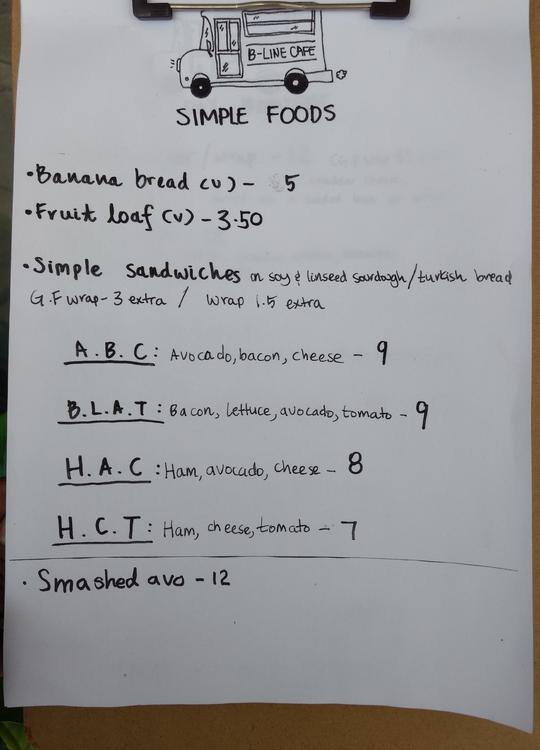 B-LINE CAFE
SIMPLE FOODS
•Banana bread (v) - 5
•Fruit loaf (v) - 3.50
•Simple sandwiches on soy & linseed sourdough/turkish bread
G.F wrap- 3 extra / wrap 1.5 extra
A.B.C: Avocado, bacon, cheese - 9
B.L.A.T: Bacon, lettuce, avocado, tomato - 9
H.A.C: Ham, avocado, cheese - 8
H.C.T: Ham, cheese, tomato - 7
• Smashed avo - 12